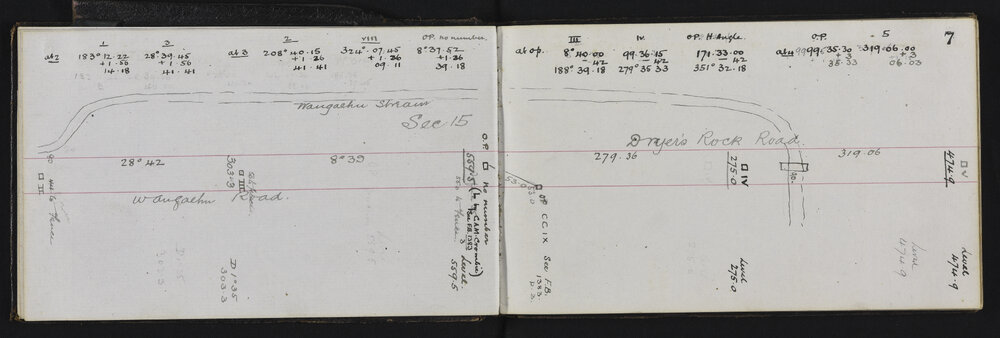 1 3 2 VIII O.P. no number
at 2 183° 12.22 28° 39.45 at 3 208° 40.15 324° 07.45 8° 37.52
+1.56 +1.56 +1.26 +1.26 +1.26
14.18 41.41 41.41 09.11 39.18
Wangaehu Stream
Sec 15
28° 42 8° 39
90
□ II
444 to fence
303.3
□ III
Wangaehu Road.
D 1°35
303.3
O.P. no number
559.5
(by C.A.M. Crombie)
See F.B. 1383
Level
559.5
7
III IV O.P. H Angle O.P. 5
at o.p. 8° 40.00 99.36.15 171.33.00 at 4 99.35.30 319.06.00
42 42 42 +3 +3
188° 39.18 279° 35 33 351° 32.18 35.33 06.03
Dryer's Rock Road
279.36 319.06
53.0
53.0
□ OP CC IX See F.B. 1383 P. 3.
□ IV
275.0
Level
275.0
90.
□ V
474.9
Level
474.9
Level
474.9